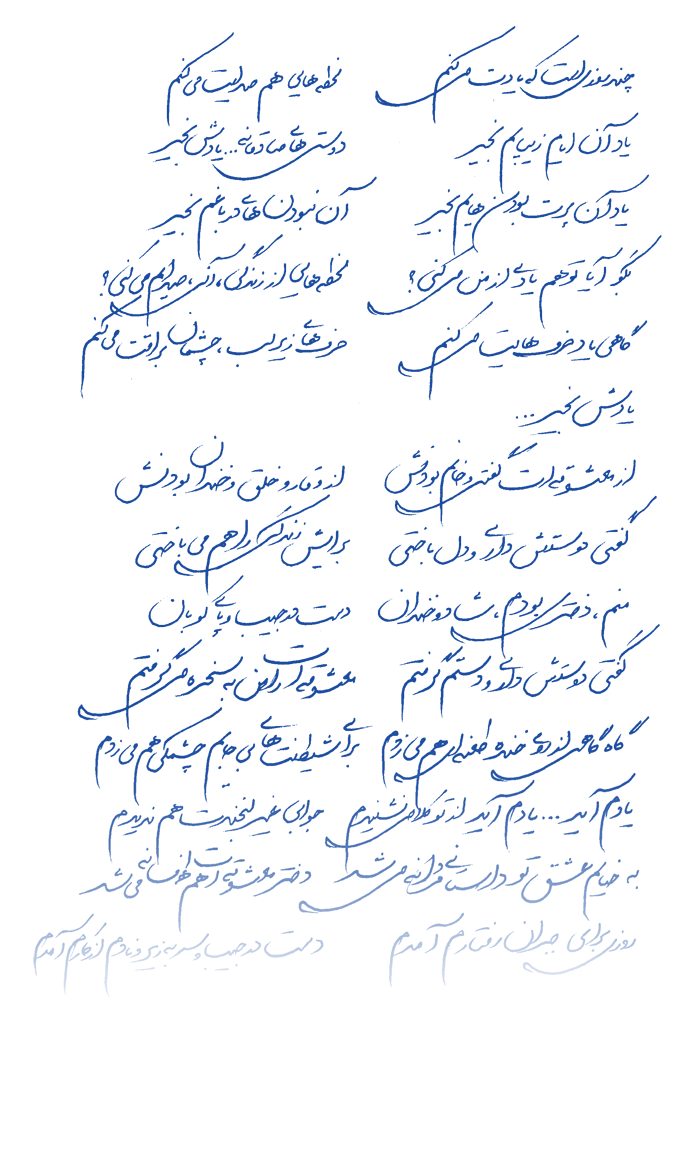 چند روزی است که یادت می‌کنم لحظه‌هایی هم صدایت می‌کنم
یاد آن ایام زیبایم بخیر دوستی‌های صادقانه... یادش بخیر
یاد آن پرت بودن‌هایم بخیر آن نبودن‌های در باغم بخیر
بگو آیا تو هم یادی از من می‌کنی؟ لحظه‌هایی از زندگی، آنی، صدایم می‌کنی؟
گاهی یاد حرف‌هایت می‌کنم حرف‌های زیر لب، چشمان براقت می‌کنم
یادش بخیر...
از معشوقه‌ات گفتی و خانم بودنش از وقار و خلق و خندان بودنش
گفتی دوستش داری و دل باختی برایش زندگی را هم می‌باختی
منم، دختری بودم، شاد و خندان دست در جیب و پای کوبان
گفتی دوستش داری و دستم گرفتم معشوقه‌ات را من به سخره می‌گرفتم
گاه گاهی لذا خنده طعنه‌ای هم می‌زدم برای شیطنت‌های بی‌جایم چشمکی هم می‌زدم
یادم آید... یادم آید از تو کلامی نشنیدم جوابی غیر لبخندت هم ندیدم
به خیالم عشق تو داستانی مردانه می‌شد دختر معشوقه‌ات هم افسانه می‌شد
روزی برای جبران رفتارم آمدم دست در جیب و سر به زیر و نادم از کارم آمدم